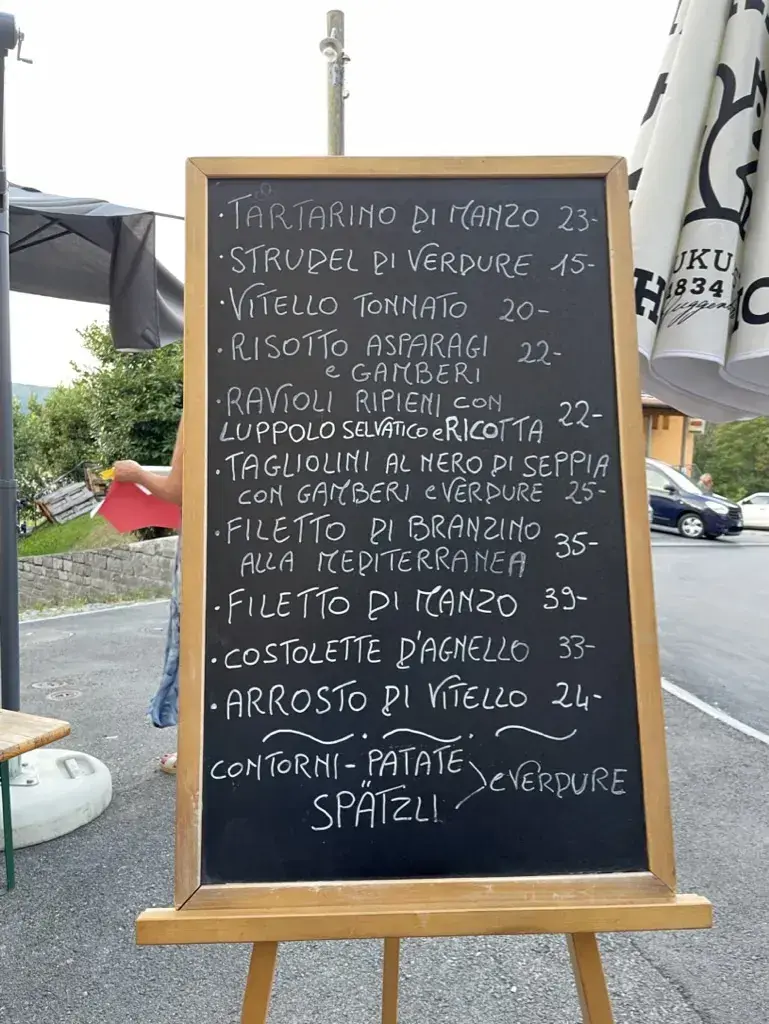 ·TARTARINO DI MANZO 23-
·STRUDEL DI VERDURE 15-
·VITELLO TONNATO 20-
·RISOTTO ASPARAGI 22-
e GAMBERI
·RAVIOLI RIPIENI CON
LUPPOLO SELVATICO e RICOTTA 22-
·TAGLIOLINI AL NERO DI SEPPIA
CON GAMBERI e VERDURE 25-
·FILETTO DI BRANZINO
ALLA MEDITERRANEA 35-
·FILETTO DI MANZO 39-
·COSTOLETTE D'AGNELLO 33-
·ARROSTO DI VITELLO 24-
CONTORNI - PATATE
SPÄTZLI
e VERDURE
1834